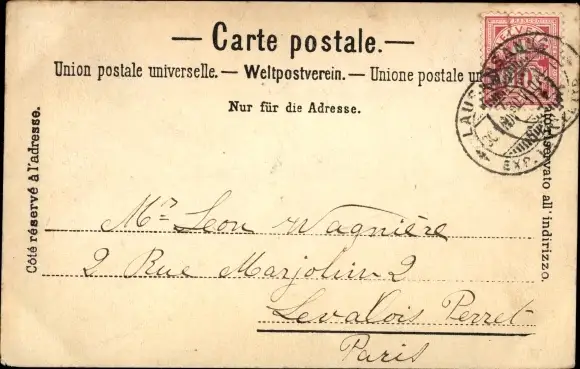 — Carte postale. —
Union postale universelle. — Weltpostverein. — Unione postale un
Nur für die Adresse.
Côté réservé à l'adresse.
riservato all' indirizzo.
LAUSANNE
EXP. L
Mr Leon Wagnière
2 Rue Marjolin 2
Levalois Perret
Paris